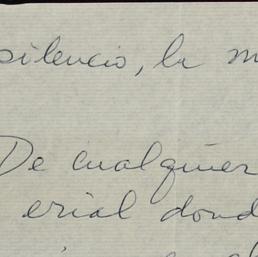 silencio, la m
De cualquier
erial dond